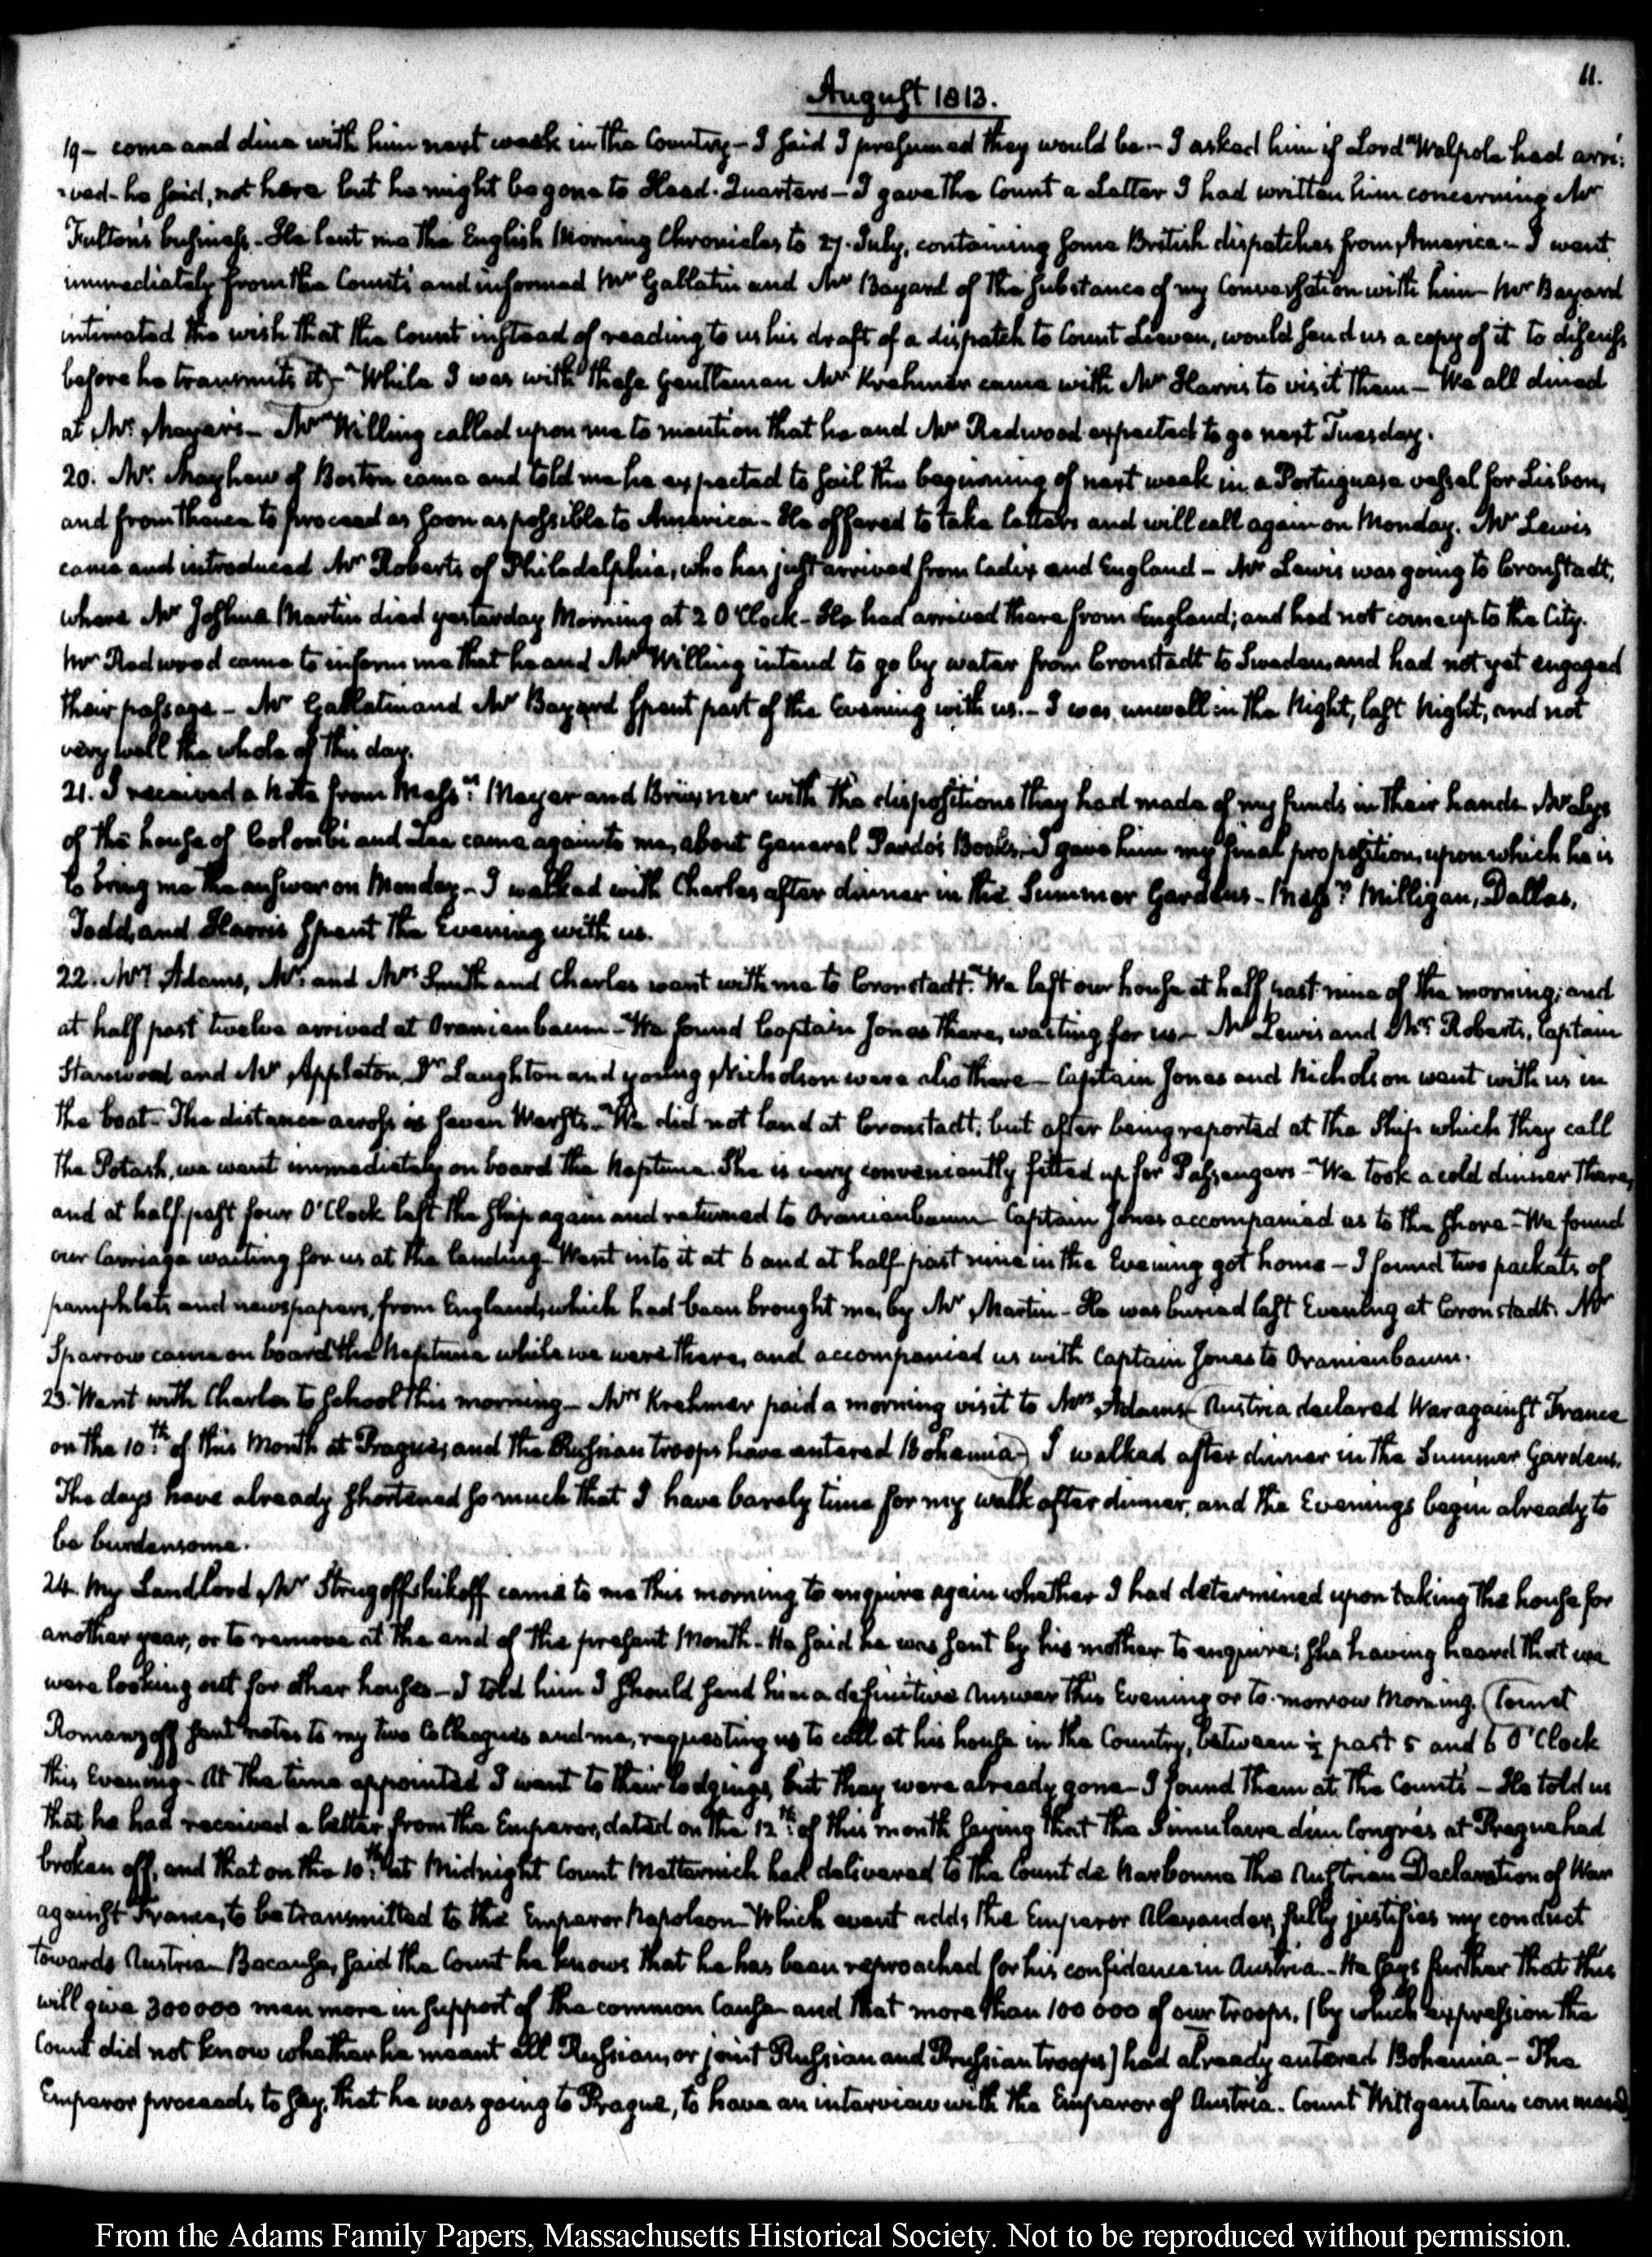 11.
August 1813.
19- come and dine with him next week in the Country - I said I presumed they would be - I asked him if Lord Walpole had arri-
-ved - he said, not here but he might be gone to Head-Quarters - I gave the Count a Letter I had written him concerning Mr
Fulton's business - He lent me the English Morning Chronicles to 27. July, containing some British dispatches from America - I went
immediately from the Count's and informed Mr Gallatin and Mr Bayard of the substance of my Conversation with him - Mr Bayard
intimated the wish that the Count instead of reading to us his draft of a dispatch to Count Lieven, would send us a copy of it to discuss
before he transmits it) - While I was with these Gentlemen Mr Krehmer came with Mr Harris to visit them - We all dined
at Mr Meyer's - Mr Willing called upon me to mention that he and Mr Redwood expected to go next Tuesday.
20. Mr. Mayhew of Boston came and told me he expected to sail the beginning of next week in a Portuguese vessel for Lisbon,
and from thence to proceed as soon as possible to America - He offered to take letters and will call again on Monday. Mr Lewis
came and introduced Mr Roberts of Philadelphia, who has just arrived from Cadiz and England - Mr Lewis was going to Cronstadt,
where Mr Joshua Martin died yesterday Morning at 2 O'Clock - He had arrived there from England; and had not come up to the City.
Mr Redwood came to inform me that he and Mr Willing intend to go by water from Cronstadt to Sweden, and had not yet engaged
their passage - Mr Gallatin and Mr Bayard spent part of the Evening with us. - I was unwell in the Night, last Night, and not
very well the whole of this day.
21. I received a Note from Messrs. Meyer and Brüxner with the dispositions they had made of my funds in their hands - Mr
of the house of Colombi and Zea came again to me, about General Pardo's Books - I gave him my final proposition, upon which he is
to bring me the answer on Monday - I walked with Charles after dinner in the Summer Gardens - Messrs. Milligan, Dallas,
Todd, and Harris spent the Evening with us.
22. Mrs Adams, Mr. and Mrs Smith and Charles went with me to Cronstadt. We left our house at half past nine of the morning; and
at half past twelve arrived at Oranienbaum - We found Captain Jones there, waiting for us - Mr Lewis and Mr Roberts, Captain
Stanwood and Mr Appleton, Dr Laughton and young Nicholson were also there - Captain Jones and Nicholson went with us in
the boat - The distance across is seven Wersts - We did not land at Cronstadt; but after being reported at the Ship which they call
the Potash, we went immediately on board the Neptune. She is very conveniently fitted up for Passengers - We took a cold dinner there,
and at half past four O'Clock left the ship again and returned to Oranienbaum - Captain Jones accompanied us to the shore - We found
our Carriage waiting for us at the landing - Went into it at 6 and at half-past nine in the Evening got home - I found two packets of
pamphlets and newspapers, from England, which had been brought me, by Mr Martin - He was buried last Evening at Cronstadt. Mr
Sparrow came on board the Neptune while we were there, and accompanied us with Captain Jones to Oranienbaum.
23. Went with Charles to School this morning - Mrs Krehmer paid a morning visit to Mrs Adams (Austria declared War against France
on the 10th. of this Month at Prague, and the Russian troops have entered Bohemia) I walked after dinner in the Summer Gardens.
The days have already shortened so much that I have barely time for my walk after dinner, and the Evenings begin already to
be burdensome.
24. My Landlord, Mr Strugoffshikoff came to me this morning to enquire again whether I had determined upon taking the house for
another year, or to remove at the end of the present Month - He said he was sent by his mother to enquire; she having heard that we
were looking out for other houses - I told him I should send him a definitive Answer this Evening or to-morrow Morning. (Count
Romanzoff sent notes to my two Colleagues and me, requesting us to call at his house in the Country, between ½ past 5 and 6 O'Clock
this Evening - At the time appointed I went to their lodgings, but they were already gone - I found them at the Count's - He told us
that he had received a letter from the Emperor, dated on the 12th. of this month saying that the Simulacre d'un Congrès at Prague had
broken off, and that on the 10th. at Midnight Count Metternich had delivered to the Count de Narbonne the Austrian Declaration of War
against France, to be transmitted to the Emperor Napoleon - Which event adds the Emperor Alexander, fully justifies my conduct
towards Austria - Because, said the Count he knows that he has been reproached for his confidence in Austria. - He says further that this
will give 300000 men more in support of the common Cause - and that more than 100000 of our troops, (by which expression the
Count did not know whether he meant all Russians, or joint Russian and Prussian troops) had already entered Bohemia - The
Emperor proceeds to say, that he was going to Prague, to have an interview with the Emperor of Austria. Count Wittgenstein commands
From the Adams Family Papers, Massachusetts Historical Society. Not to be reproduced without permission.